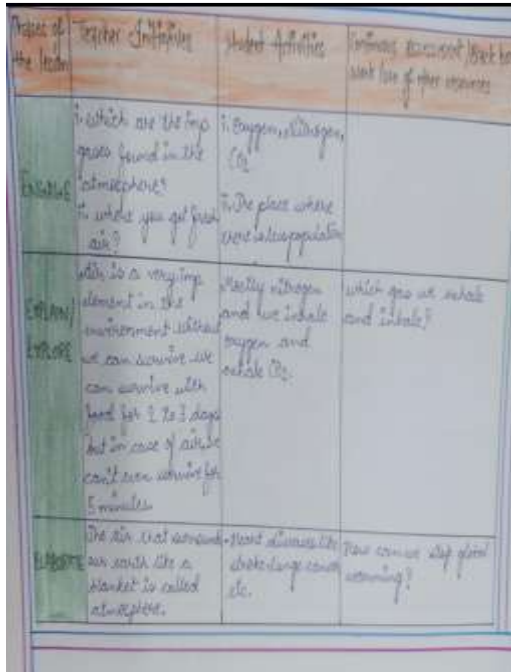 Phases of
the lesson
Teacher Initiatives
Student Activities
Continuous assessment/Black board
work/use of other resources
ENGAGE
i. which are the imp
gases found in the
atmosphere?
ii. where you get fresh
air?
i. Oxygen, Nitrogen,
CO2
ii. The place where
there is less population
EXPLAIN/
EXPLORE
Air is a very imp
element in the
environment without
we can survive we
can survive with
food for 2 to 3 days
but in case of air, we
can't even survive for
5 minutes.
Mostly nitrogen
and we inhale
oxygen and
exhale CO2.
which gas we exhale
and inhale?
ELABORATE
The air that surround
our earth like a
blanket is called
atmosphere.
Heart diseases like
stroke lungs cancer
etc.
How can we stop global
warming?